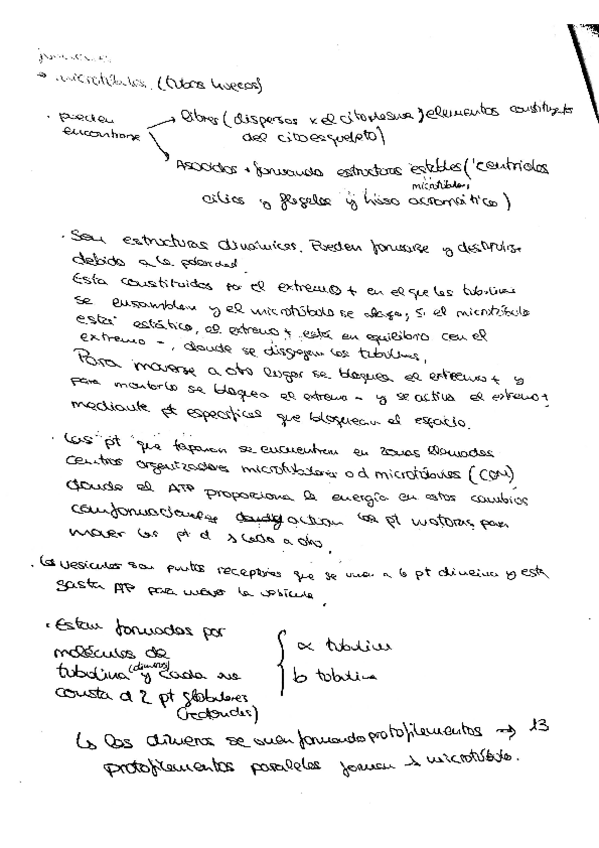 → microtúbulos. (tubos huecos)
· pueden encontrarse
→ libres (dispersos x el citoplasma) elementos constituyentes
del citoesqueleto)
→ Asociados → formando estructuras estables (centriolos
microtúbulos,
cilios y flagelos y huso acromático)
· Son estructuras dinámicas. Pueden formarse y destruirse
debido a la polaridad.
Esta constituidos por el extremo + en el que las tubulinas
se ensamblan y el microtúbulo se alarga, si el microtúbulo
está estático, el extremo + está en equilibro con el
extremo -, donde se disgregan las tubulinas,
Para moverse a otro lugar se bloquea el extremo + y
para montarlo se bloquea el extremo - y se activa el extremo +
mediante pt específicas que bloquean el espacio.
· Las pt que taponan se encuentran en zonas llamadas
centros organizadores microtubulares o d microtúbulos (COM)
donde el ATP proporciona la energía en estos cambios
conformacionales actúan las pt motoras para
mover las pt d 1 lado a otro.
· Las vesículas son puntos receptores que se unen a la pt dineina y esta
gasta ATP para mover la vesícula.
· Estan formados por
moléculas de
tubulina (dímeros) y cada una
consta d 2 pt globulares
(redondas)
α tubulina
b tubulina
↳ los dímeros se unen formando protofilamentos → 13
protofilamentos paralelos forman 1 microtúbulo.